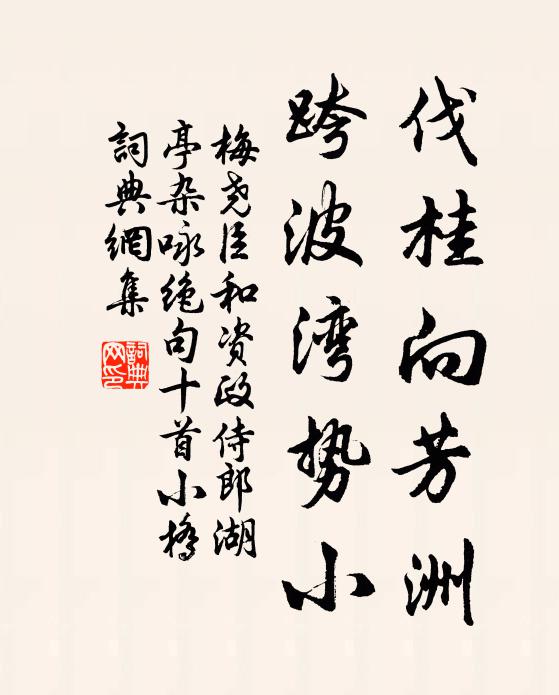 伐桂向芳洲
跨波湾势小
梅尧臣和资政侍郎湖
亭杂咏绝句十首小桥
詞典網集
詞典
网印